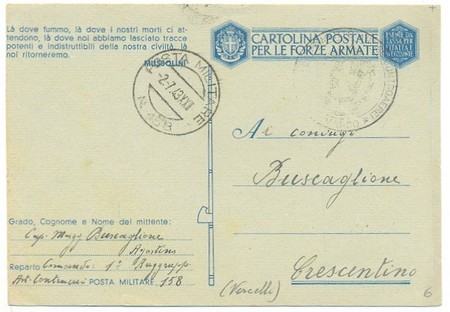 Là dove fummo, là dove i nostri morti ci at-
tendono, là dove noi abbiamo lasciato tracce
potenti e indistruttibili della nostra civiltà, là
noi ritorneremo.
MUSSOLINI
CARTOLINA POSTALE
PER LE FORZE ARMATE
ESENTE DA
TASSA PER
L'ITALIA E
POSTA MILITARE
-2-7-43 XXI
N.
Al coniugi
Buscaglione
Crescentino
(Vercelli)
Grado, Cognome e Nome del mittente:
Cap. Magg Buscaglione
Agostino
Reparto Comando 1° Raggrupp.
Art. POSTA MILITARE, 158
6